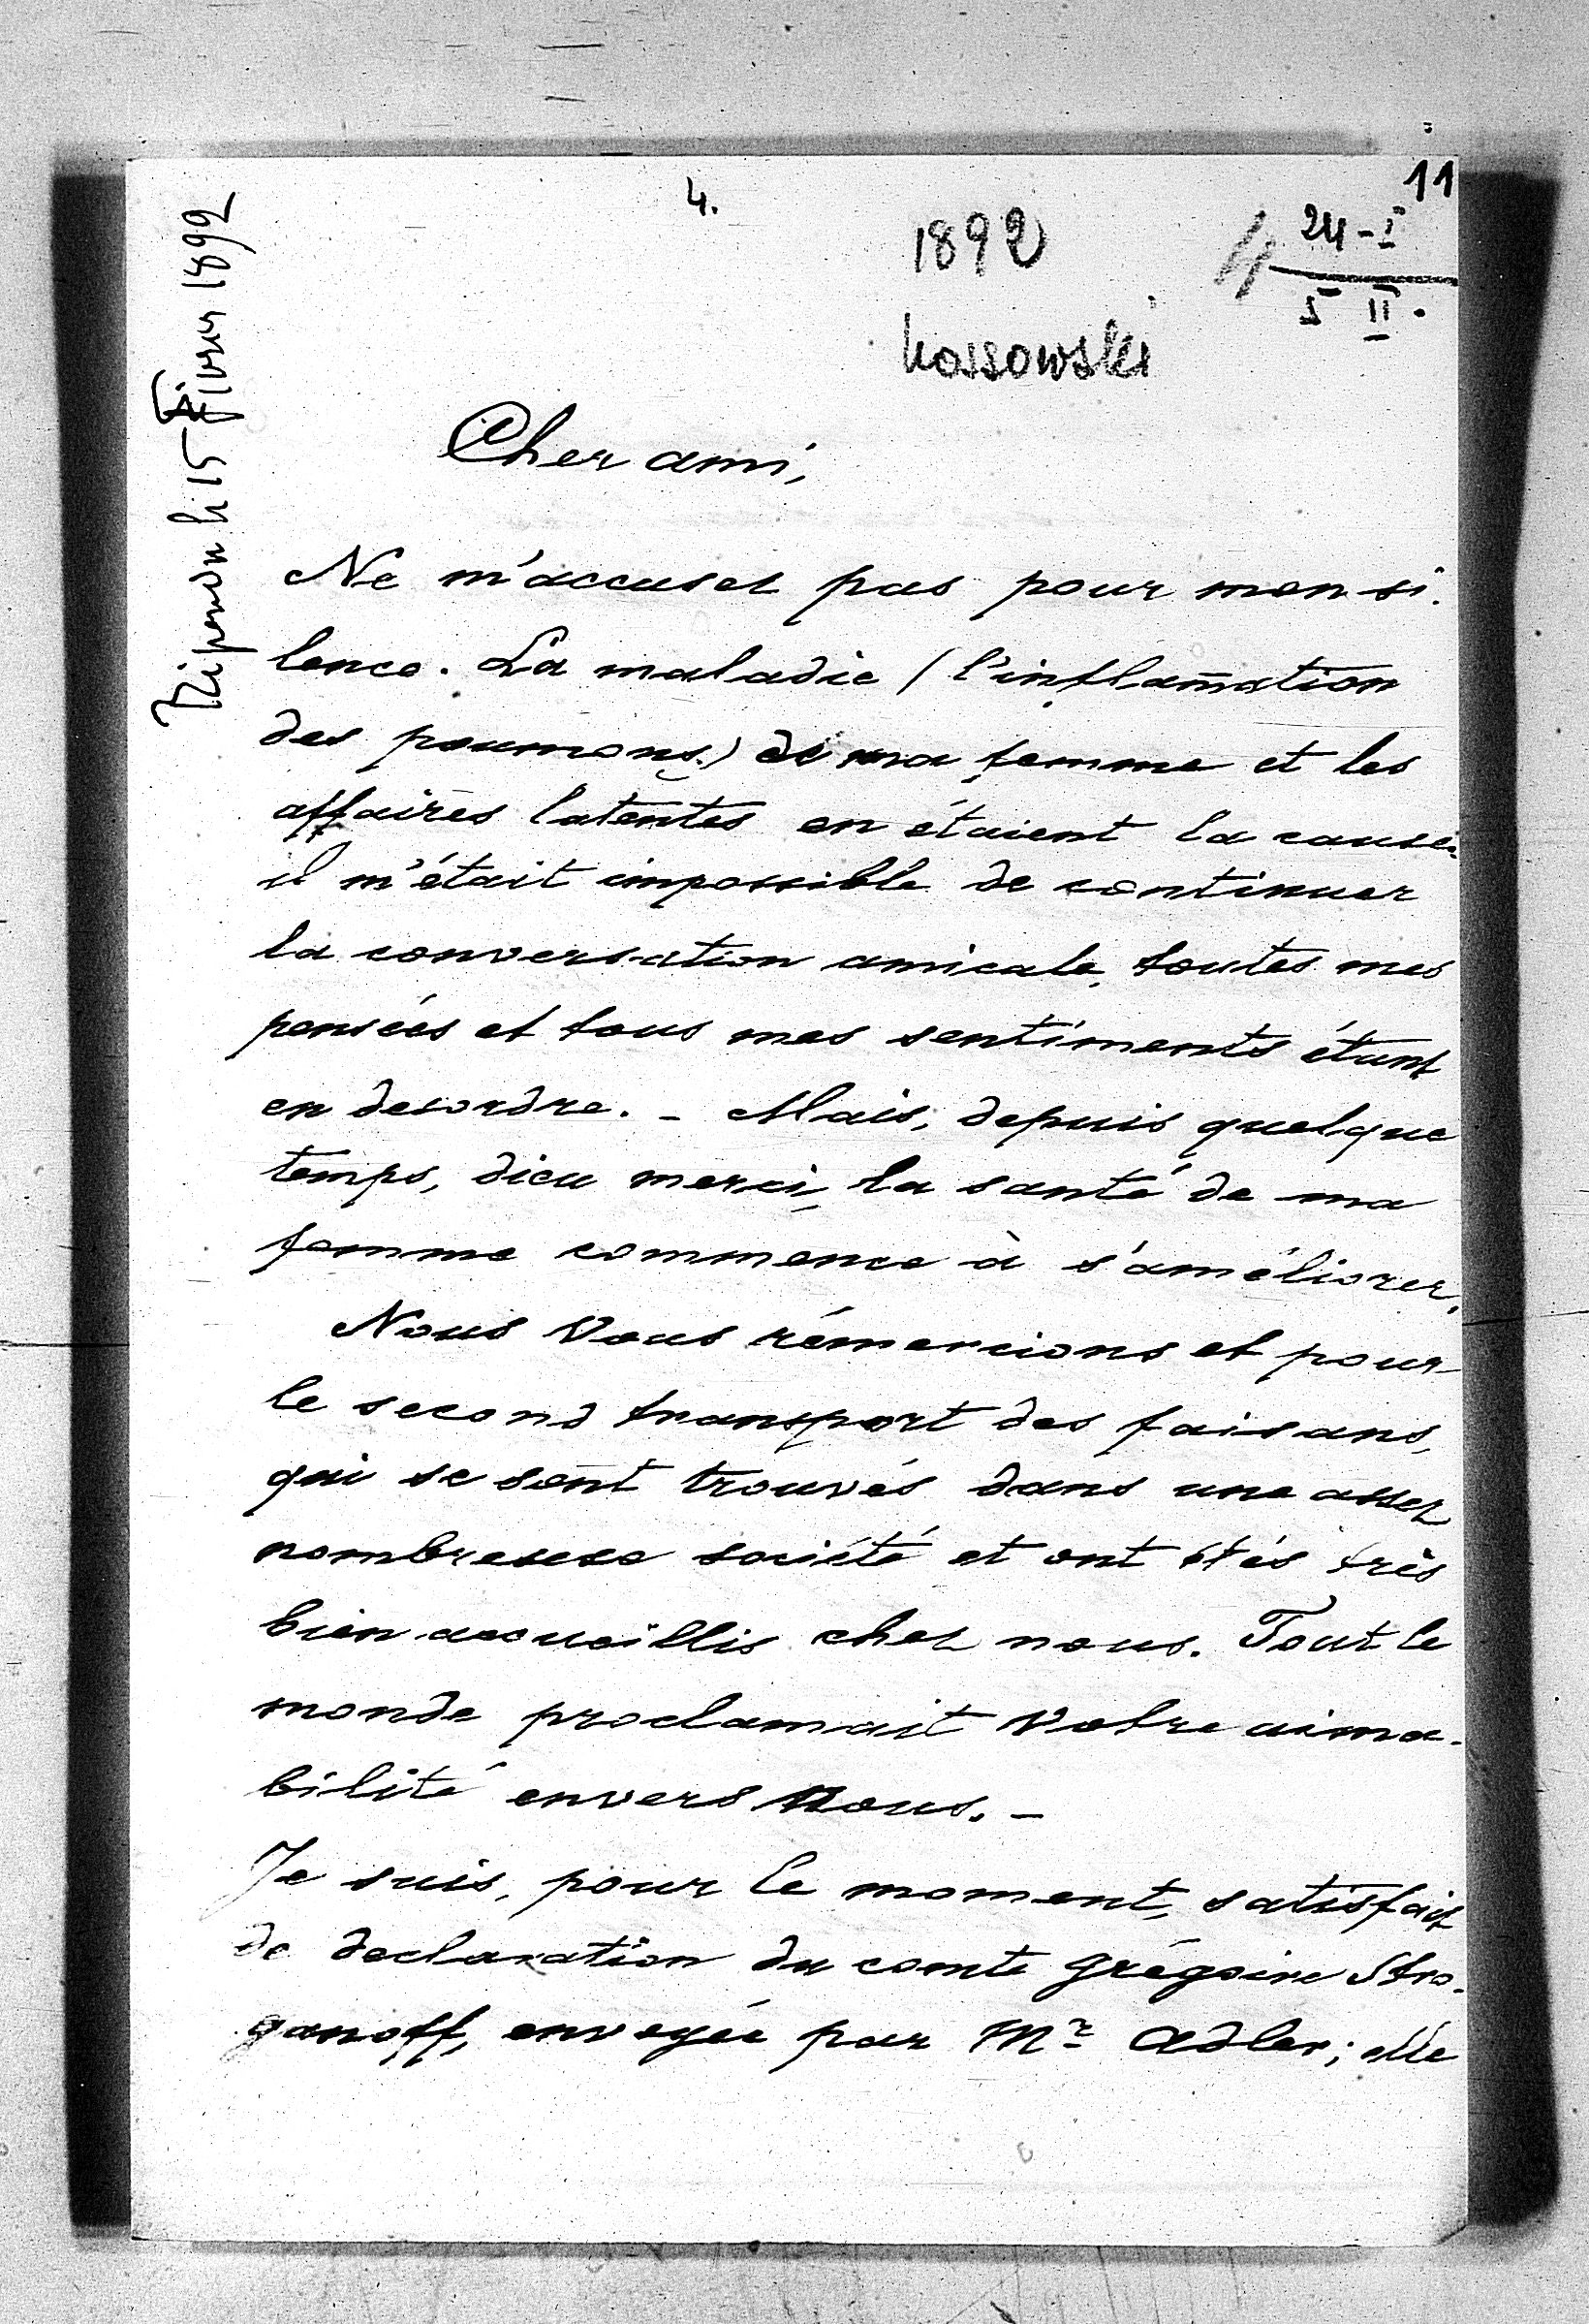 11
4.
1892
4 24-I
5 II.
Kossowski
Répondu le 15 Février 1892
Cher ami,
Ne m'accusez pas pour mon si-
lence. La maladie (l'inflam̅ation
des poumons) de ma femme et les
affaires latentes en étaient la cause:
il m'était impossible de continuer
la conversation amicale, toutes mes
pensées et tous mes sentiments étant
en desordre. - Mais, depuis quelque
temps, dieu merci, la santé de ma
femme commence à s'améliorer.
Nous Vous rémercions et pour
le second transport des faisans,
qui se sont trouvés dans une assez
nombreuse société et ont étés très
bien accueillis chez nous. Tout le
monde proclamait Votre aima-
bilité envers nous. -
Je suis, pour le moment, satisfait
de declaration du comte Grégoire Stro-
ganoff, envoyée par Mr Adler; elle